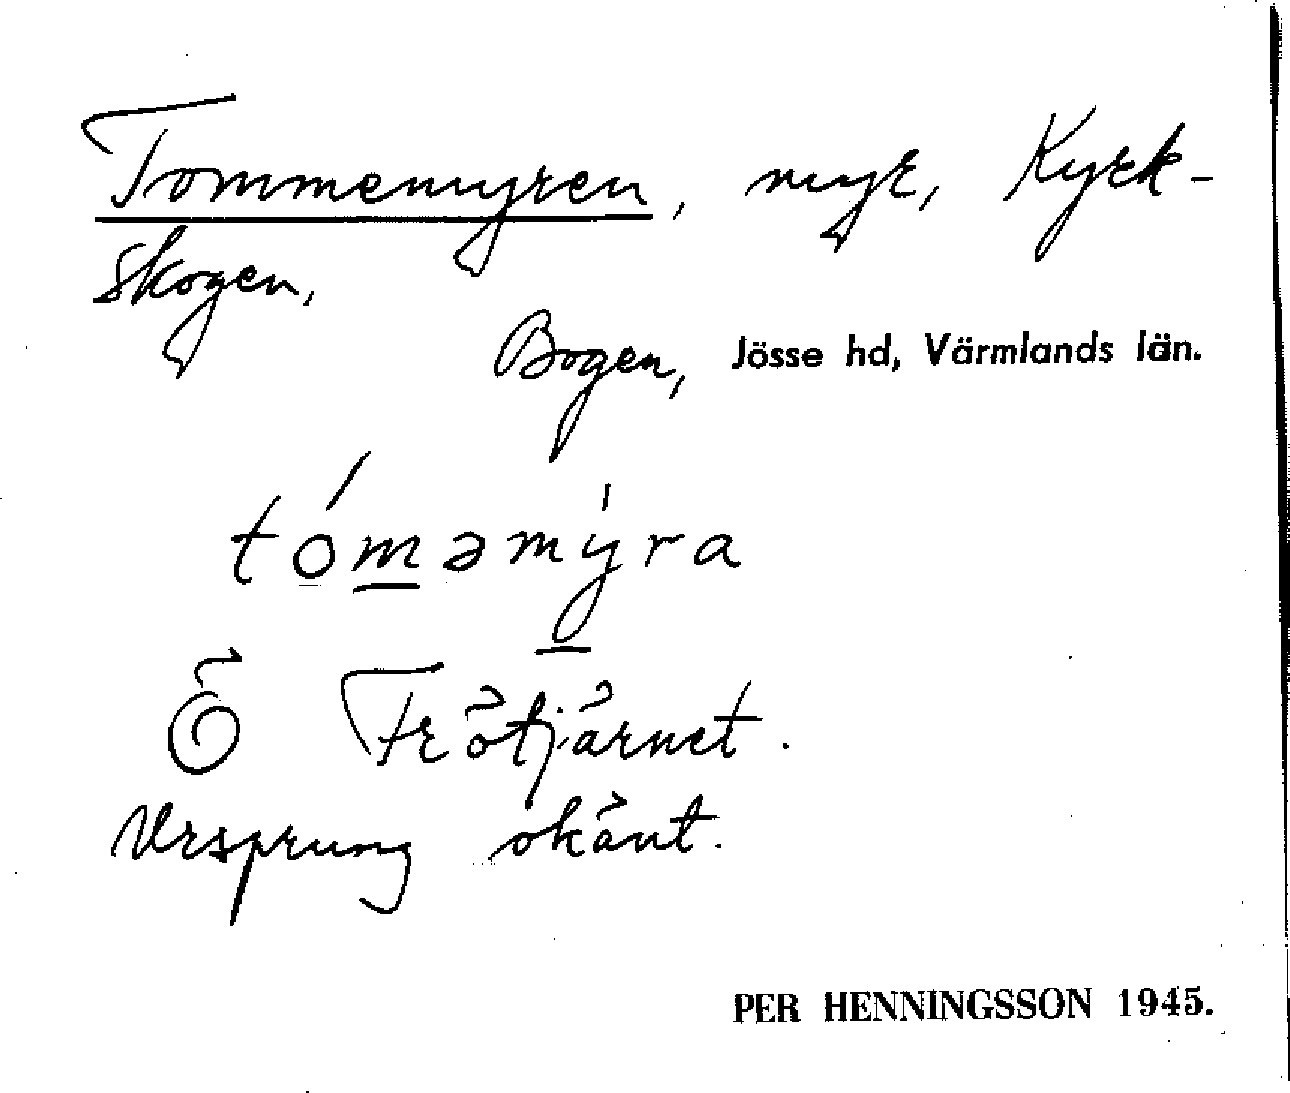 Tommemyren, myr, Kyrk-
skogen,
Bogen, Jösse hd, Värmlands län.
tóməmýra
Ö Frötjärnet.
Ursprung okänt.
PER HENNINGSSON 1945.